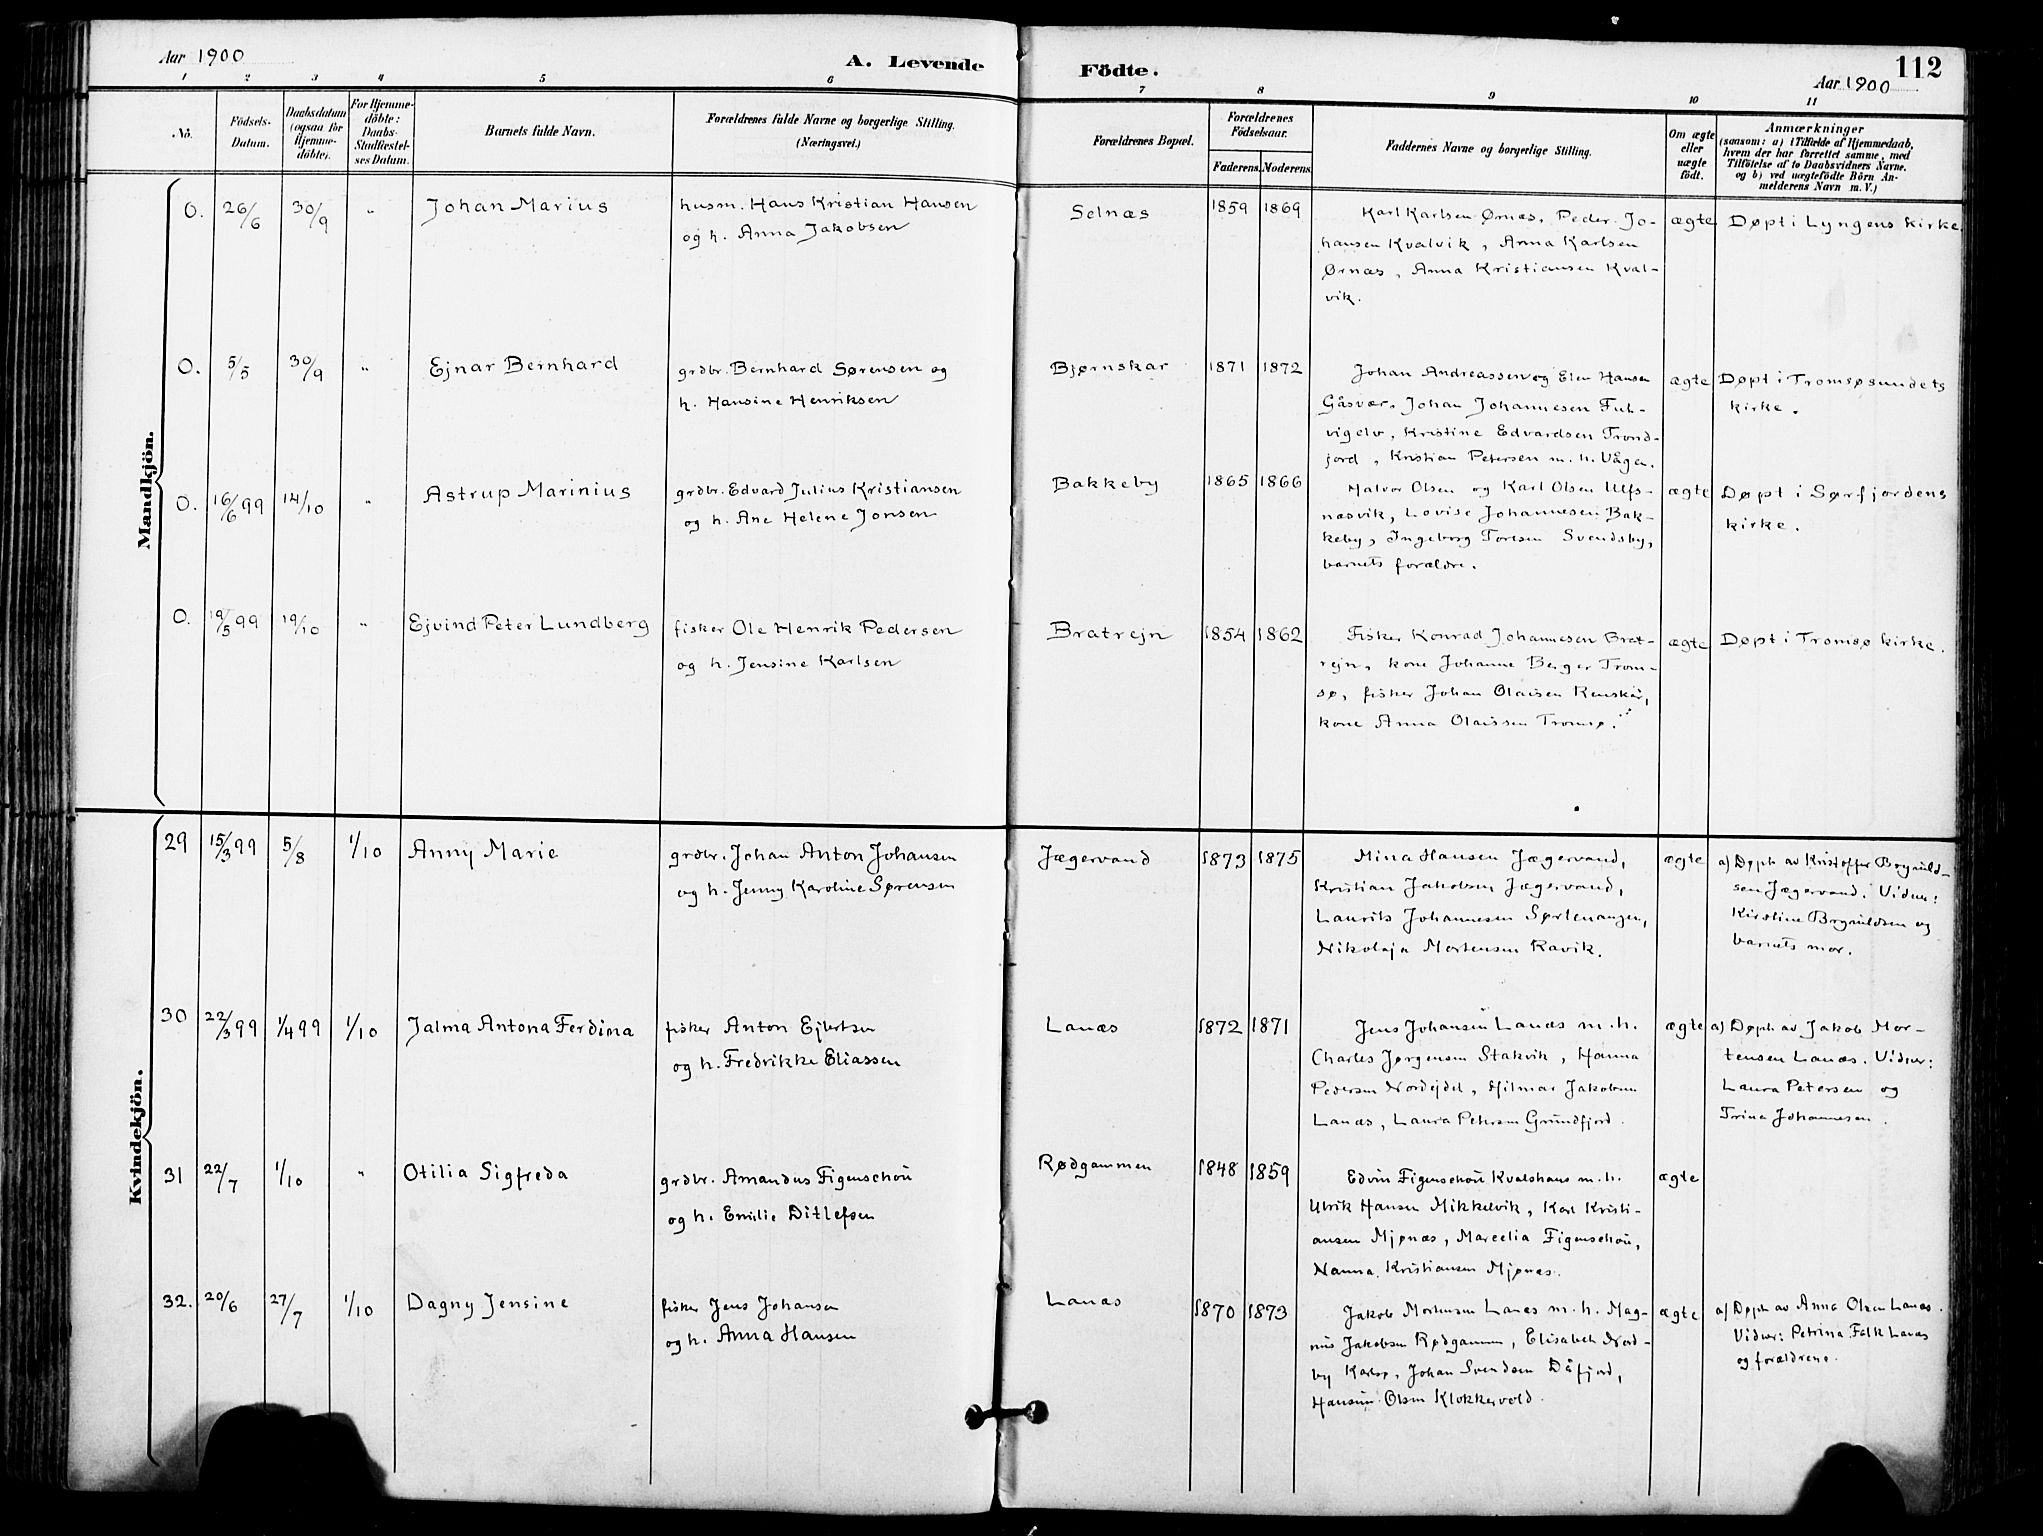 Aar 1900
A. Levende
Födte.
112
Aar 1900
1 2 3 4 5 6 7 8 9 10 11
No.
Födsels-
Datum.
Daabsdatum
(ogsaa for
Hjemme-
döbte).
For Hjemme-
döbte:
Daabs-
Stadfæstel-
ses Datum.
Barnets fulde Navn.
Forældrenes fulde Navne og borgerlige Stilling.
(Næringsvei.)
Forældrenes Bopæl.
Forældrenes
Födselsaar.
Faderens. Moderens.
Faddernes Navne og borgerlige Stilling.
Om ægte
eller
uægte
födt.
Anmærkninger
(saasom: a) i Tilfælde af Hjemmedaab,
hvem der har forrettet samme, med
Tilföielse af to Daabsvidners Navne.
og b) ved uægtefödte Börn An-
melderens Navn m. V.)
Mandkjön.
0. 26/6 30/9 " Johan Marius
husm. Hans Kristian Hansen
og h. Anna Jakobsen
Selnæs 1859 1869
Karl Karlsen Ørnæs, Peder Jo-
hansen Kvalvik, Anna Karlsen
Ørnæs, Anna Kristiansen Kval-
vik.
ægte Døpt i Lyngens kirke.
0. 5/5 30/9 " Ejnar Bernhard
grdbr. Bernhard Sørensen og
h. Hansine Henriksen
Bjørnskar 1871 1872
Johan Andreassen og Elen Hansen
Gåsvær, Johan Johannesen Futt-
vigelv, Kristine Edvardsen Trond-
jord, Kristian Petersen m. h. Vågen.
ægte Døpt i Tromsøsundets
kirke.
0. 16/6 99 14/10 " Astrup Marinius
grdbr. Edvard Julius Kristiansen
og h. Ane Helene Jonsen
Bakkeby 1865 1866
Halvor Olsen og Karl Olsen Ulfs-
næsvik, Lovise Johannesen Bak-
keby, Ingeborg Toresen Svendsby,
barnets forældre.
ægte Døpt i Sørfjordens
kirke.
0. 19/5 99 19/10 " Ejvind Peter Lundberg
fisker Ole Henrik Pedersen
og h. Jensine Karlsen
Bratrejn 1854 1862
Fisker Konrad Johannesen Brat-
rejn, kone Johanne Berger Trom-
sø, fisker Johan Olaisen Renskär,
kone Anna Olaissen Tromsø.
ægte Døpt i Tromsø kirke.
Kvindekjön.
29 15/3 99 5/8 1/10 Anny Marie
grdbr. Johan Anton Johansen
og h. Jenny Karoline Sørensen
Jægervand 1873 1875
Mina Hansen Jægervand,
Kristian Jakobsen Jægervand,
Laurits Johannesen Sørlenangen,
Nikolaja Mortensen Ravik.
ægte a) Døpt av Kristoffer Brynild-
sen Jægervand. Vidner:
Kirstine Brynildsen og
barnets mor.
30 22/3 99 1/4 99 1/10 Jalma Antona Ferdina
fisker Anton Ejlertsen
og h. Fredrikke Eliassen
Lanæs 1872 1871
Jens Johansen Lanæs m. h.
Charles Jørgensen Stakvik, Hanna
Pedersen Nordejdet, Hilmar Jakobsen
Lanæs, Laura Petersen Grundfjord.
ægte a) Døpt av Jakob Mor-
tensen Lanæs. Vidner:
Laura Petersen og
Trine Johannesen.
31 22/7 1/10 " Otilia Sigfreda
grdbr. Amandus Figenschou
og h. Emilie Ditlefsen
Rødgammen 1848 1859
Edvin Figenschou Kvalshaus m. h.
Ulrik Hansen Mikkelvik, Karl Kristi-
ansen Mjønæs, Marcelia Figenschou,
Nanna Kristiansen Mjønæs.
ægte
32. 20/6 27/7 1/10 Dagny Jensine
fisker Jens Johansen
og h. Anna Hansen
Lanæs 1870 1873
Jakob Mortensen Lanæs m. h. Mag-
nus Jakobsen Rødgammen, Elisabeth Nord-
by Karlsø, Johan Svendsen Dåfjord,
Hansine Olsen Klokkervold.
ægte a) Døpt av Anna Olsen Lanæs.
Vidner: Petrina Falk Lanæs
og forældrene.